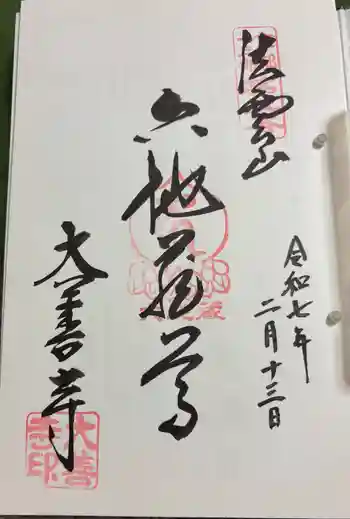 法雲山
六地蔵尊
令和七年
二月十三日
大善寺
大善
寺印